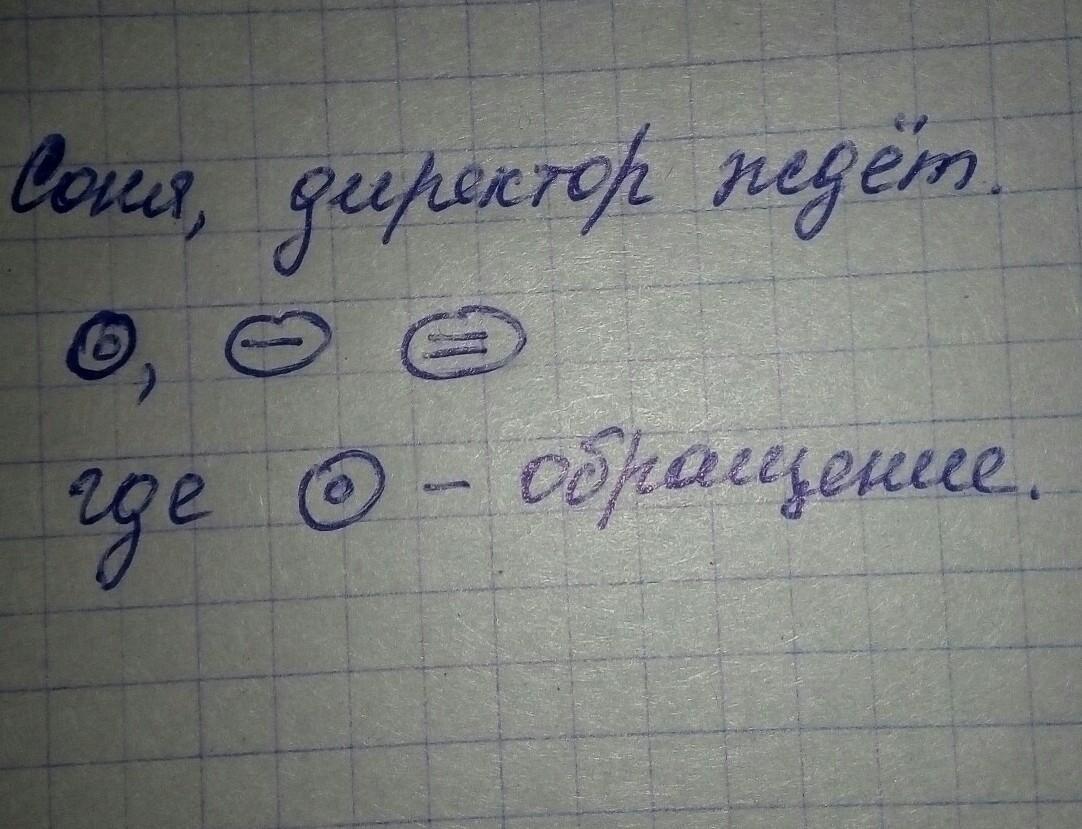 Соня, директор ждёт.
⊙, ⊖ ⊜
где ⊙ - обращение.